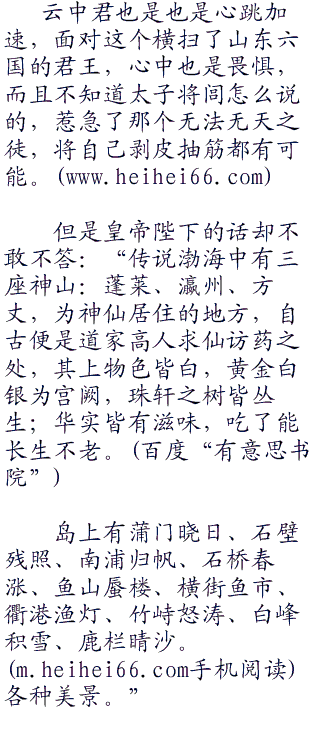 云中君也是也是心跳加
速，面对这个横扫了山东六
国的君王，心中也是畏惧，
而且不知道太子将闾怎么说
的，惹急了那个无法无天之
徒，将自己剥皮抽筋都有可
能。(www.heihei66.com)
但是皇帝陛下的话却不
敢不答：“传说渤海中有三
座神山：蓬莱、瀛州、方
丈，为神仙居住的地方，自
古便是道家高人求仙访药之
处，其上物色皆白，黄金白
银为宫阙，珠轩之树皆丛
生；华实皆有滋味，吃了能
长生不老。(百度“有意思书
院”)
岛上有蒲门晓日、石壁
残照、南浦归帆、石桥春
涨、鱼山蜃楼、横街鱼市、
衢港渔灯、竹峙怒涛、白峰
积雪、鹿栏晴沙。
(m.heihei66.com手机阅读)
各种美景。”